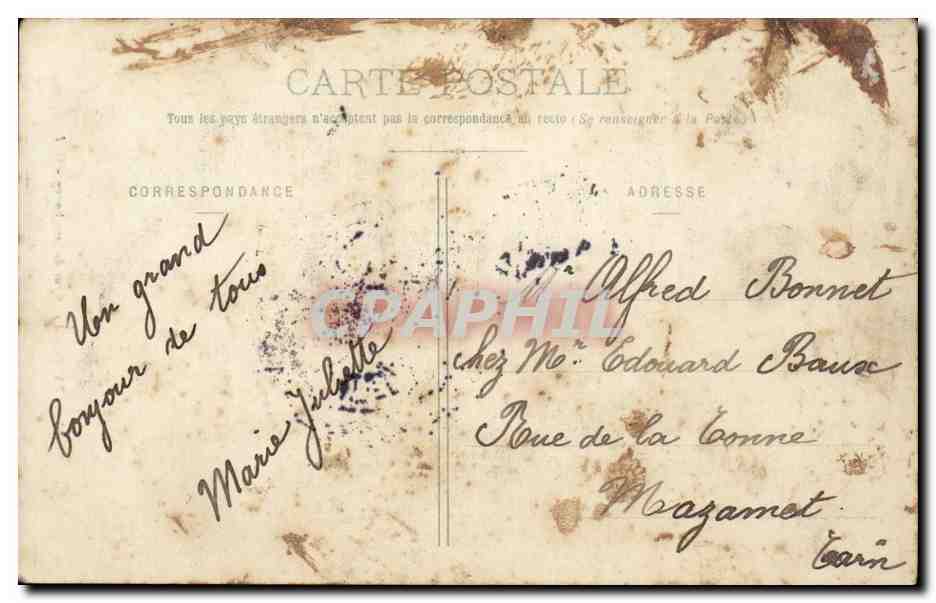 CARTE POSTALE
Tous les pays étrangers n'acceptent pas la correspondance au recto (Se renseigner à la Poste)
CORRESPONDANCE
Un grand
bonjour de tous
Marie Juliette
ADRESSE
Mr Alfred Bonnet
chez Mr. Edouard Baux
Rue de la Tonne
Mazamet
Tarn
CPAPHIL